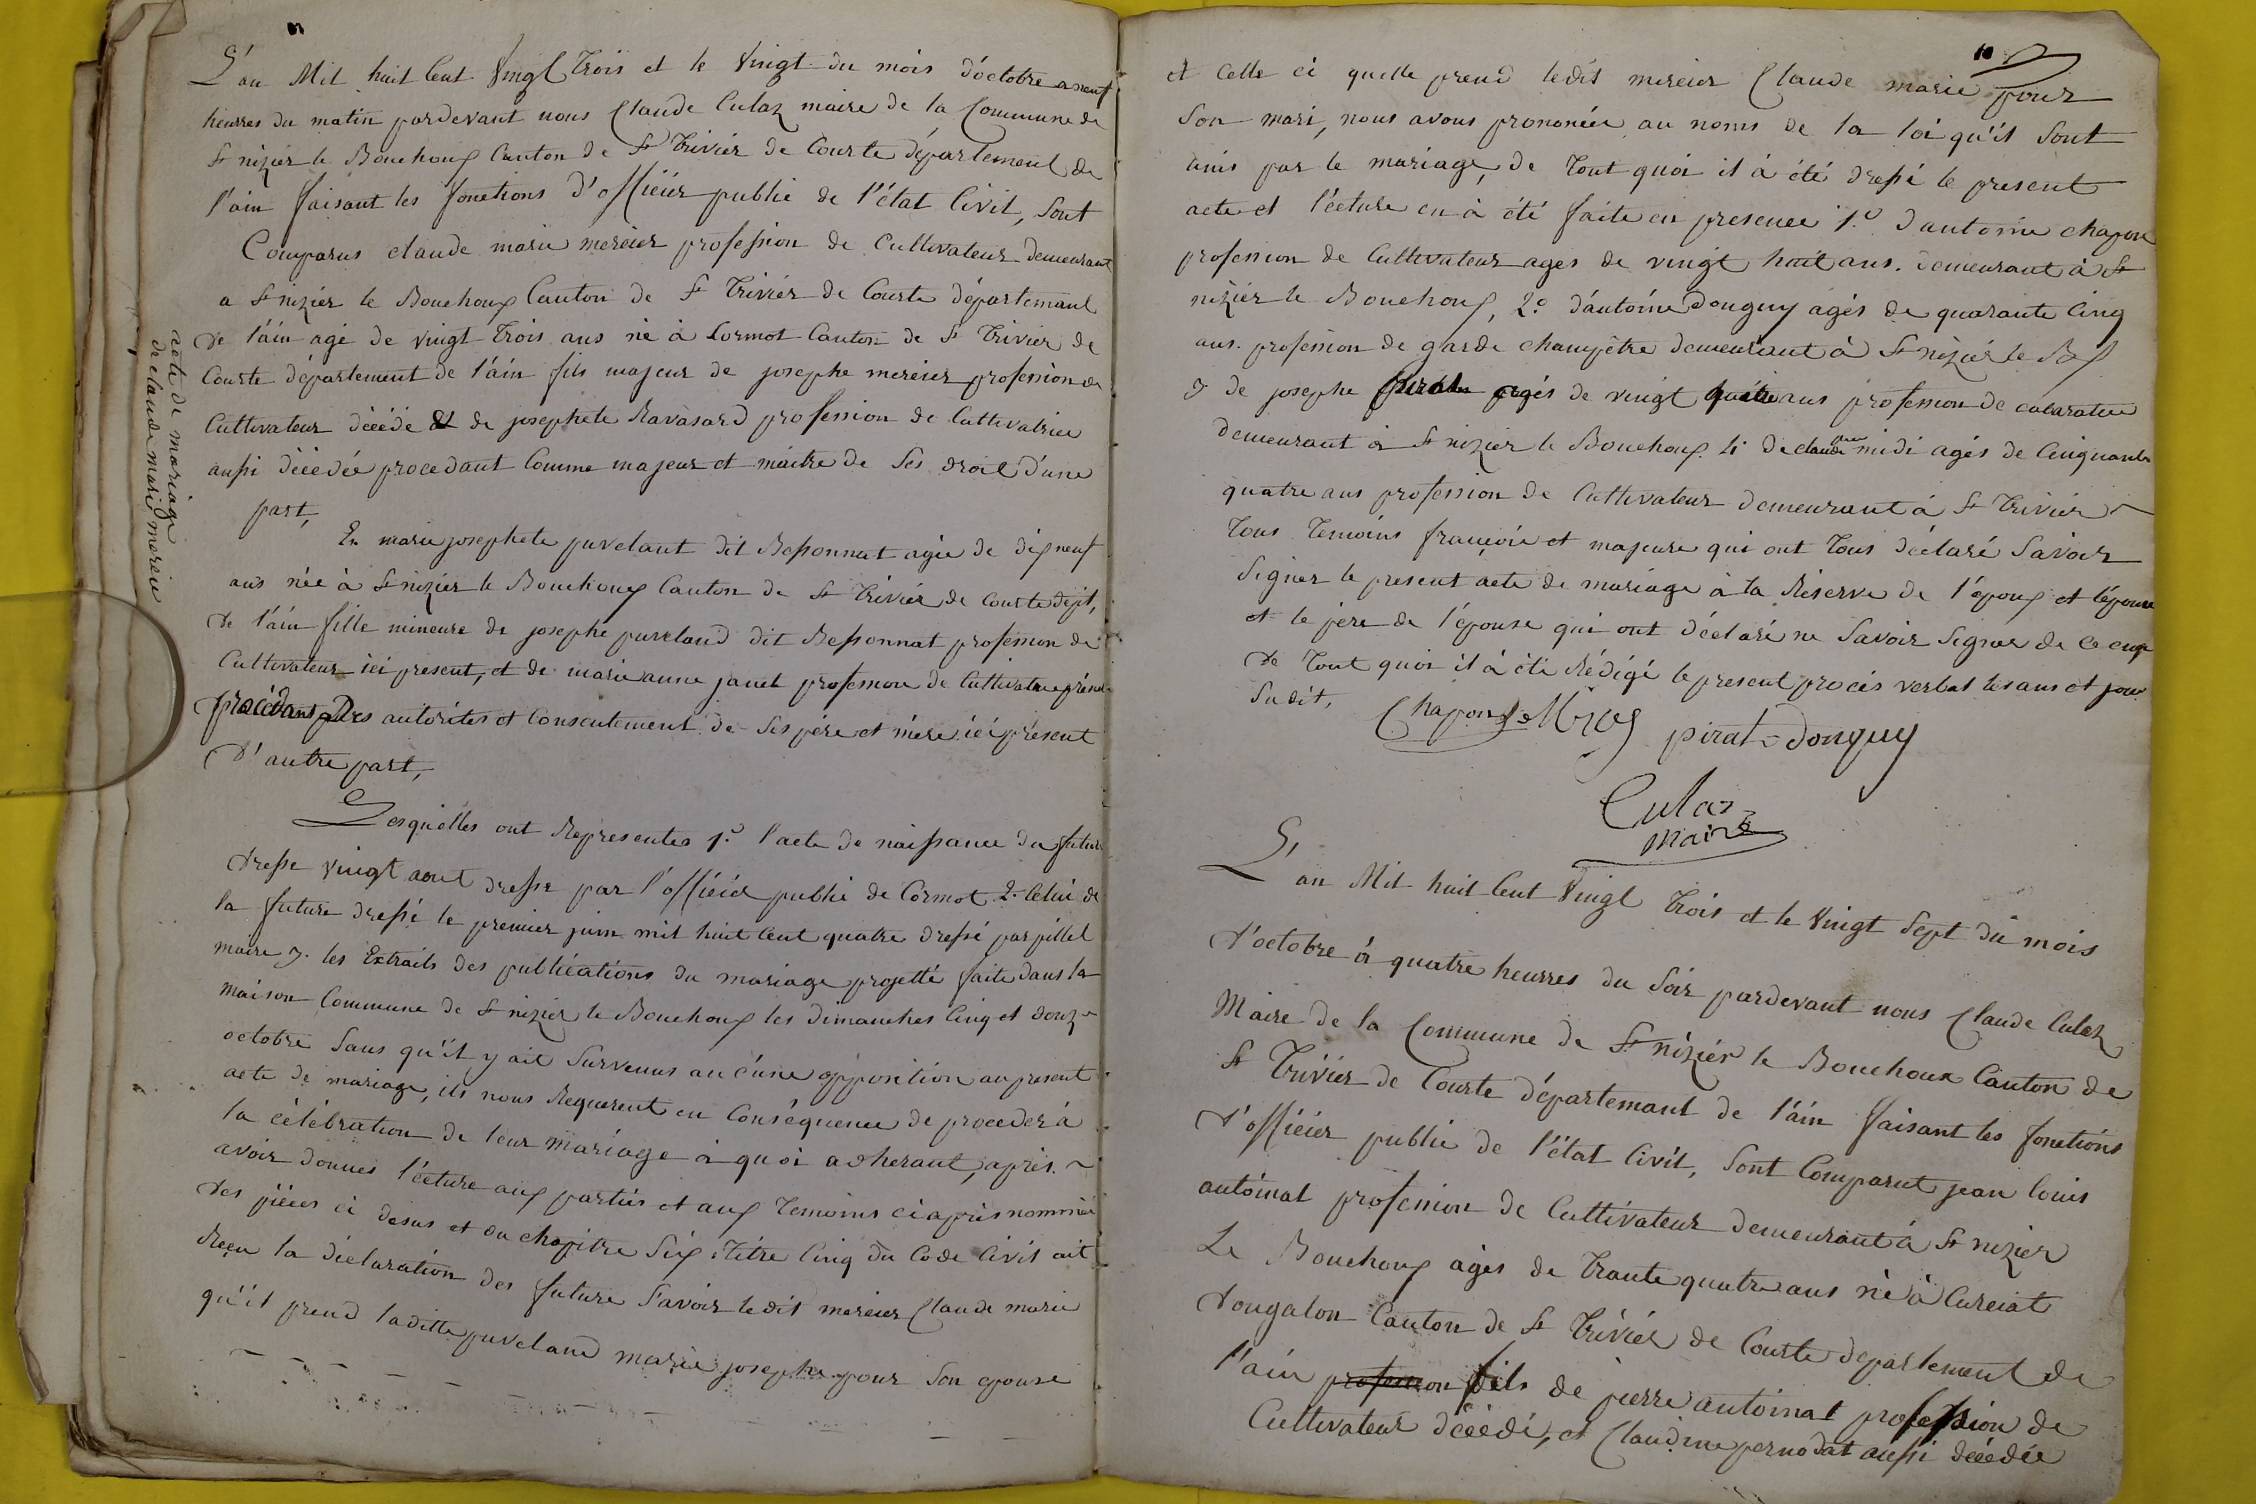 L'an Mil huit Cent Vingt Trois et le Vingt du mois d'octobre a neuf
heurres du matin pardevant nous Claude Culaz maire de la Commune de
St nizier le Bouchoux Canton de St Trivier de Courte département de
l'ain faisant les fonctions d'officier public de l'état Civil, sont
Comparus claude marie mercier profession de Cultivateur demeurant
a St nizier le Bouchoux Canton de St Trivier de Courte départemant
de l'ain agé de vingt trois ans né à Cormot Canton de St Trivier de
Courte département de l'ain fils majeur de josephe mercier profession de
Cultivateur décédé et de josephete Ravasard profession de Cultivatrice
aussi décédée procedant Comme majeur et maitre de ses droit d'une
part,
acte de mariage
de claude marie mercier
Et marie josephete puvelant dit Bessonnat agée de dix neuf
ans née à St nizier le Bouchoux Canton de St Trivier de Courte dept,
de l'ain fille mineure de josephe puveland dit Bessonnat profession de
Cultivateur ici present, et de marie anne janet profession de Cultivatrice
procédant des autorités et Consentement de ses père et mère ici présent
D'autre part,
Lesquelles ont Representes 1.° l'acte de naissance du futur
dresse vingt aout dresse par l'officié public de Cormot 2. Celui de
la future dressé le premier juin mil huit Cent quatre dressé par pillet
maire 3. les Extraits des publications du mariage projetté faite dans la
maison Commune de St nizier le Bouchoux les dimanches Cinq et douze
octobre sans qu'il y ait survenus aucune opposition au present
acte de mariage, ils nous Requerent en Conséquence de proceder à
la célébration de leur mariage à quoi adherant, après
avoir donnes l'ecture aux parties et aux temoins ci après nommé
des pièces ci desus et du chapitre Six titre Cinq du Code Civil ait
Reçu la déclaration des future Savoir ledit mercier Claude marie
qu'il prend laditte puveland marie josephe pour Son epouse
10
et Celle ci quelle prend ledit mercier Claude marie pour
Son mari, nous avons prononcée au noms de la loi qu'il Sont
unis par le mariage, de tout quoi il à été dressé le present
acte et l'écture en à été faite en presence 1.° d'antoine chapon
profession de Cultivateur ages de vingt huit ans. demeurant à St
nizier le Bouchoux, 2.° d'antoine Donguy agés de quarante Cinq
ans. profession de garde champêtre demeurant à St nizier le Bx
3 de josephe agés de vingt ans profession de cabaratier
demeurant à St nizier le Bouchoux 4 de claude midi agés de Cinquante
quatre ans profession de Cultivateur demeurant à St Trivier
Tous Temoins françois et majeure qui ont tous déclaré Savoir
Signer le present acte de mariage à la Réserve de l'époux et l'épouse
et le père de l'épouse qui ont déclaré ne Savoir signer de ce enquis
de Tout quoi il à été Rédigé le present procès verbal les ans et jour
Sudit,
Chapon pirat Donguy
Culaz
maire
L'an Mil huit Cent Vingt Trois et le Vingt Sept du mois
d'octobre à quatre heurres du Soir pardevant nous Claude Culaz
Maire de la Commune de St nizier le Bouchoux Canton de
St Trivier de Courte départemant de l'ain faisant les fonctions
d'officier public de l'état Civil, Sont Comparut jean louis
antoinat profession de Cultivateur demeurant à St nizier
Le Bouchoux agés de trante quatre ans né à Curciat
dongalon Canton de St Trivier de Courte departement de
l'ain profession fils de pierre antoinat profession de
Cultivateur décédé, et Claudine pernodat aussi décédée